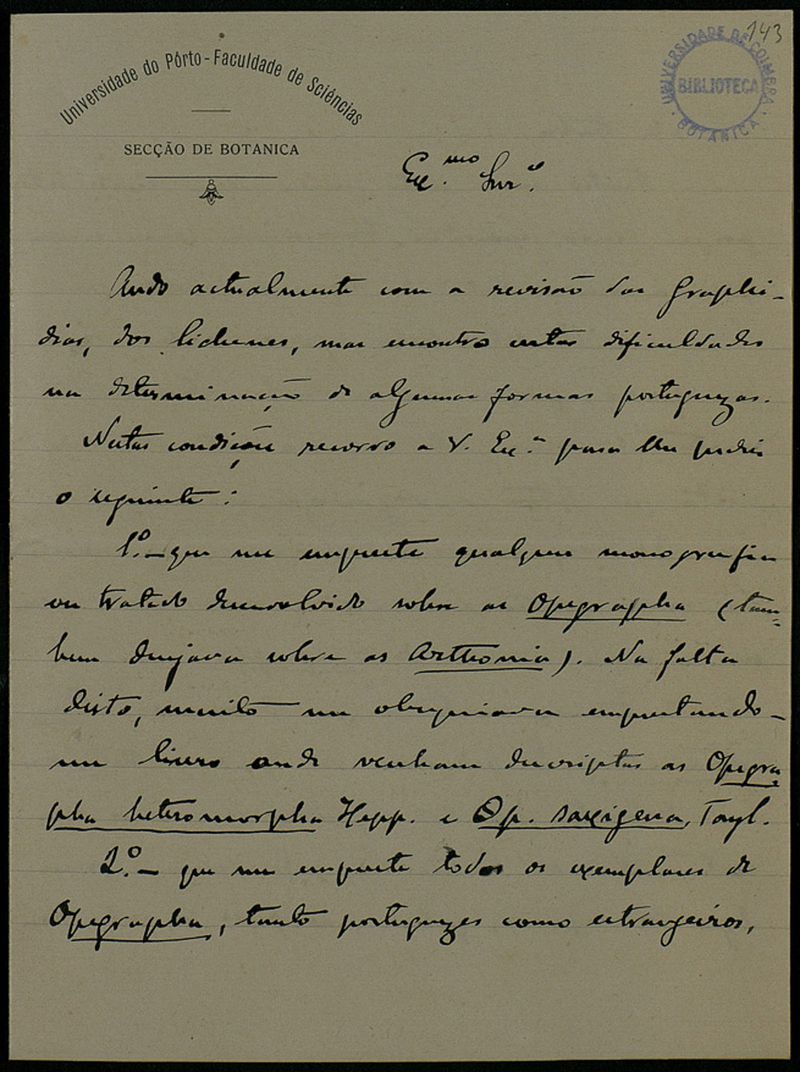 143
UNIVERSIDADE DE COIMBRA
BIBLIOTECA
BOTANICA
Universidade do Pôrto - Faculdade de Sciências
SECÇÃO DE BOTANICA
Ex.mo Snr.
Ando actualmente com a revisão das Graphi-
dias, dos lichenes, mas encontro certas dificuldades
na determinação de algumas formas portuguezas.
Nestas condições recorro a V. Ex.a para lhe pedir
o seguinte:
1.º - que me empreste qualquer monografia
ou tratado desenvolvido sobre as Opegrapha (tam-
bem desejava sobre as Arthonia). Na falta
disto, muito me obsequiava emprestando-
me livro onde venham descriptas as Opegra-
pha heteromorpha Hepp. e Op. saxigena, Tayl.
2.º - que me empreste todos os exemplares de
Opegrapha, tanto portuguezes como estrangeiros,